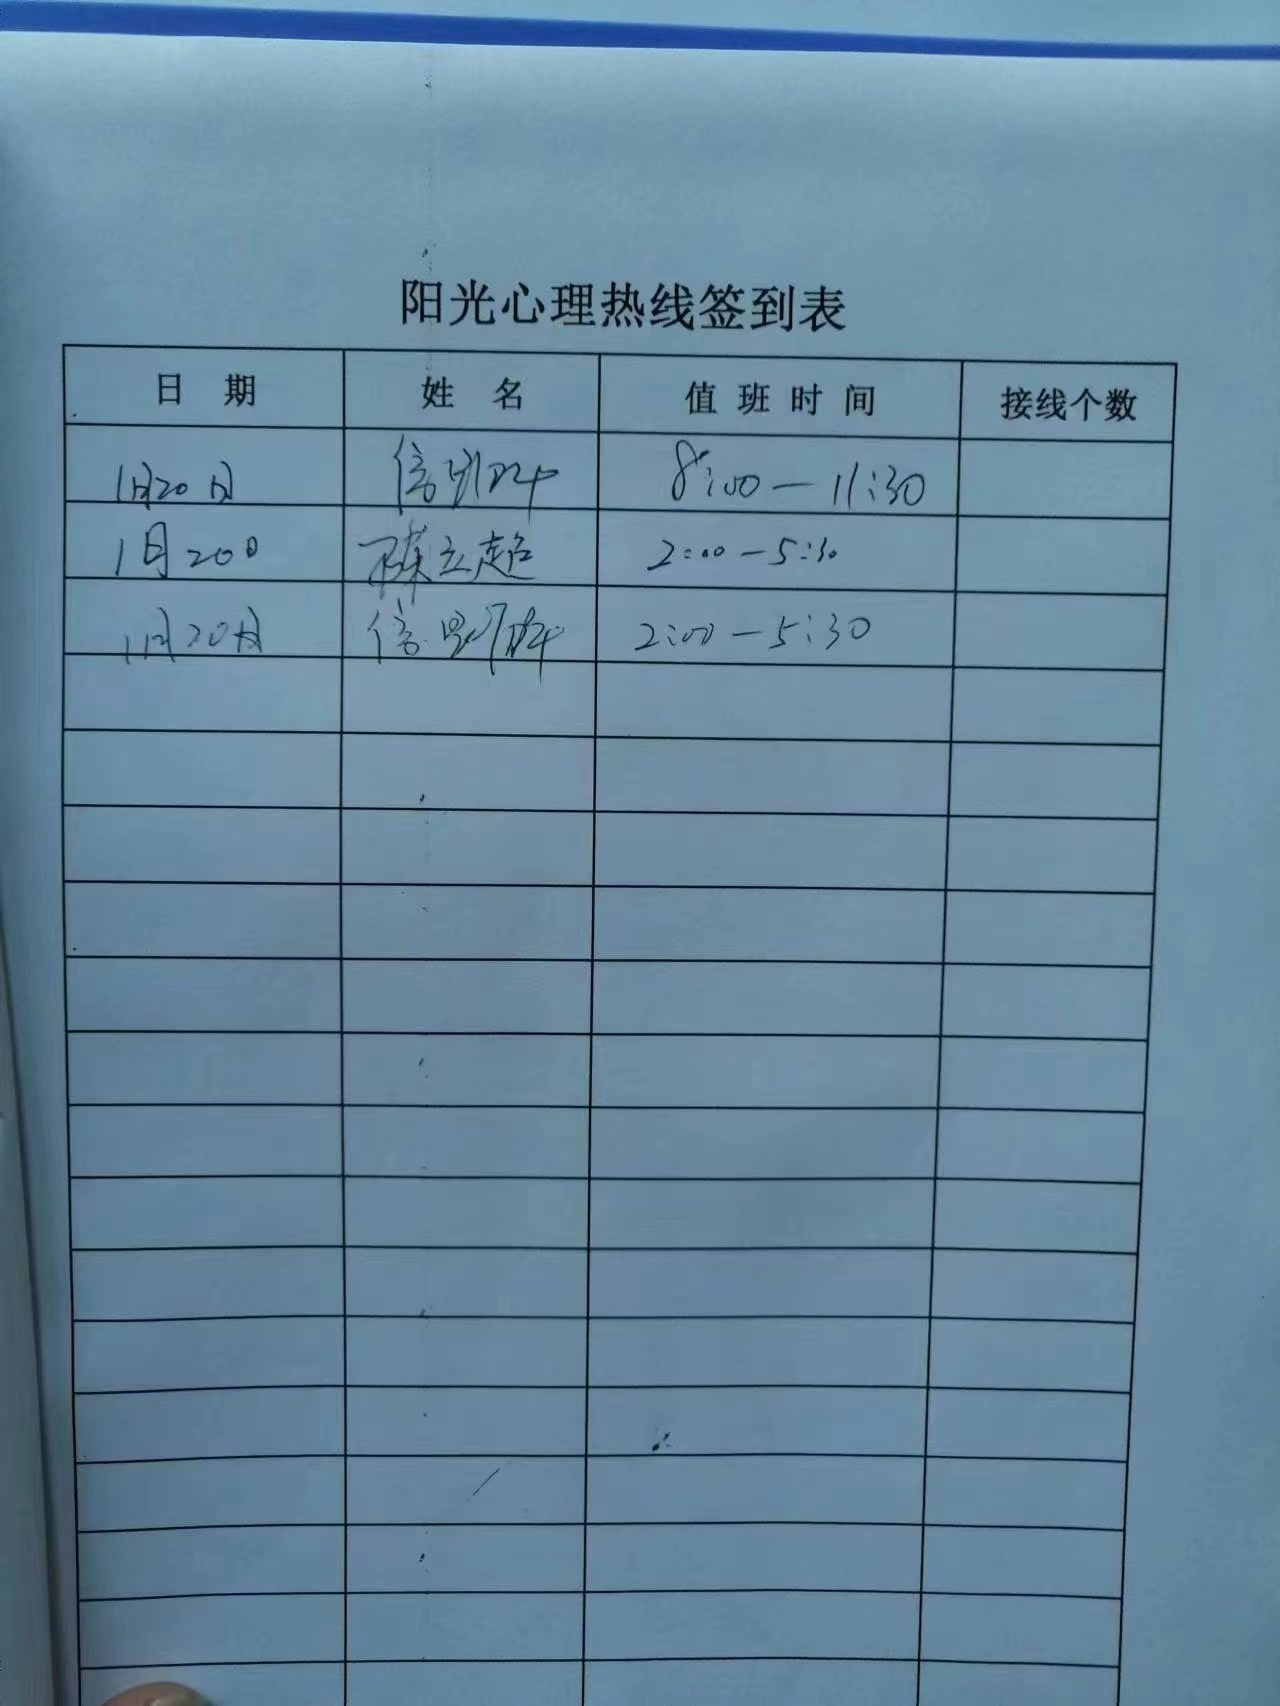 阳光心理热线签到表
日 期 姓 名 值 班 时 间 接线个数
1月20日 8:00—11:30
1月20日 立超 2:00—5:30
1月20日 2:00—5:30